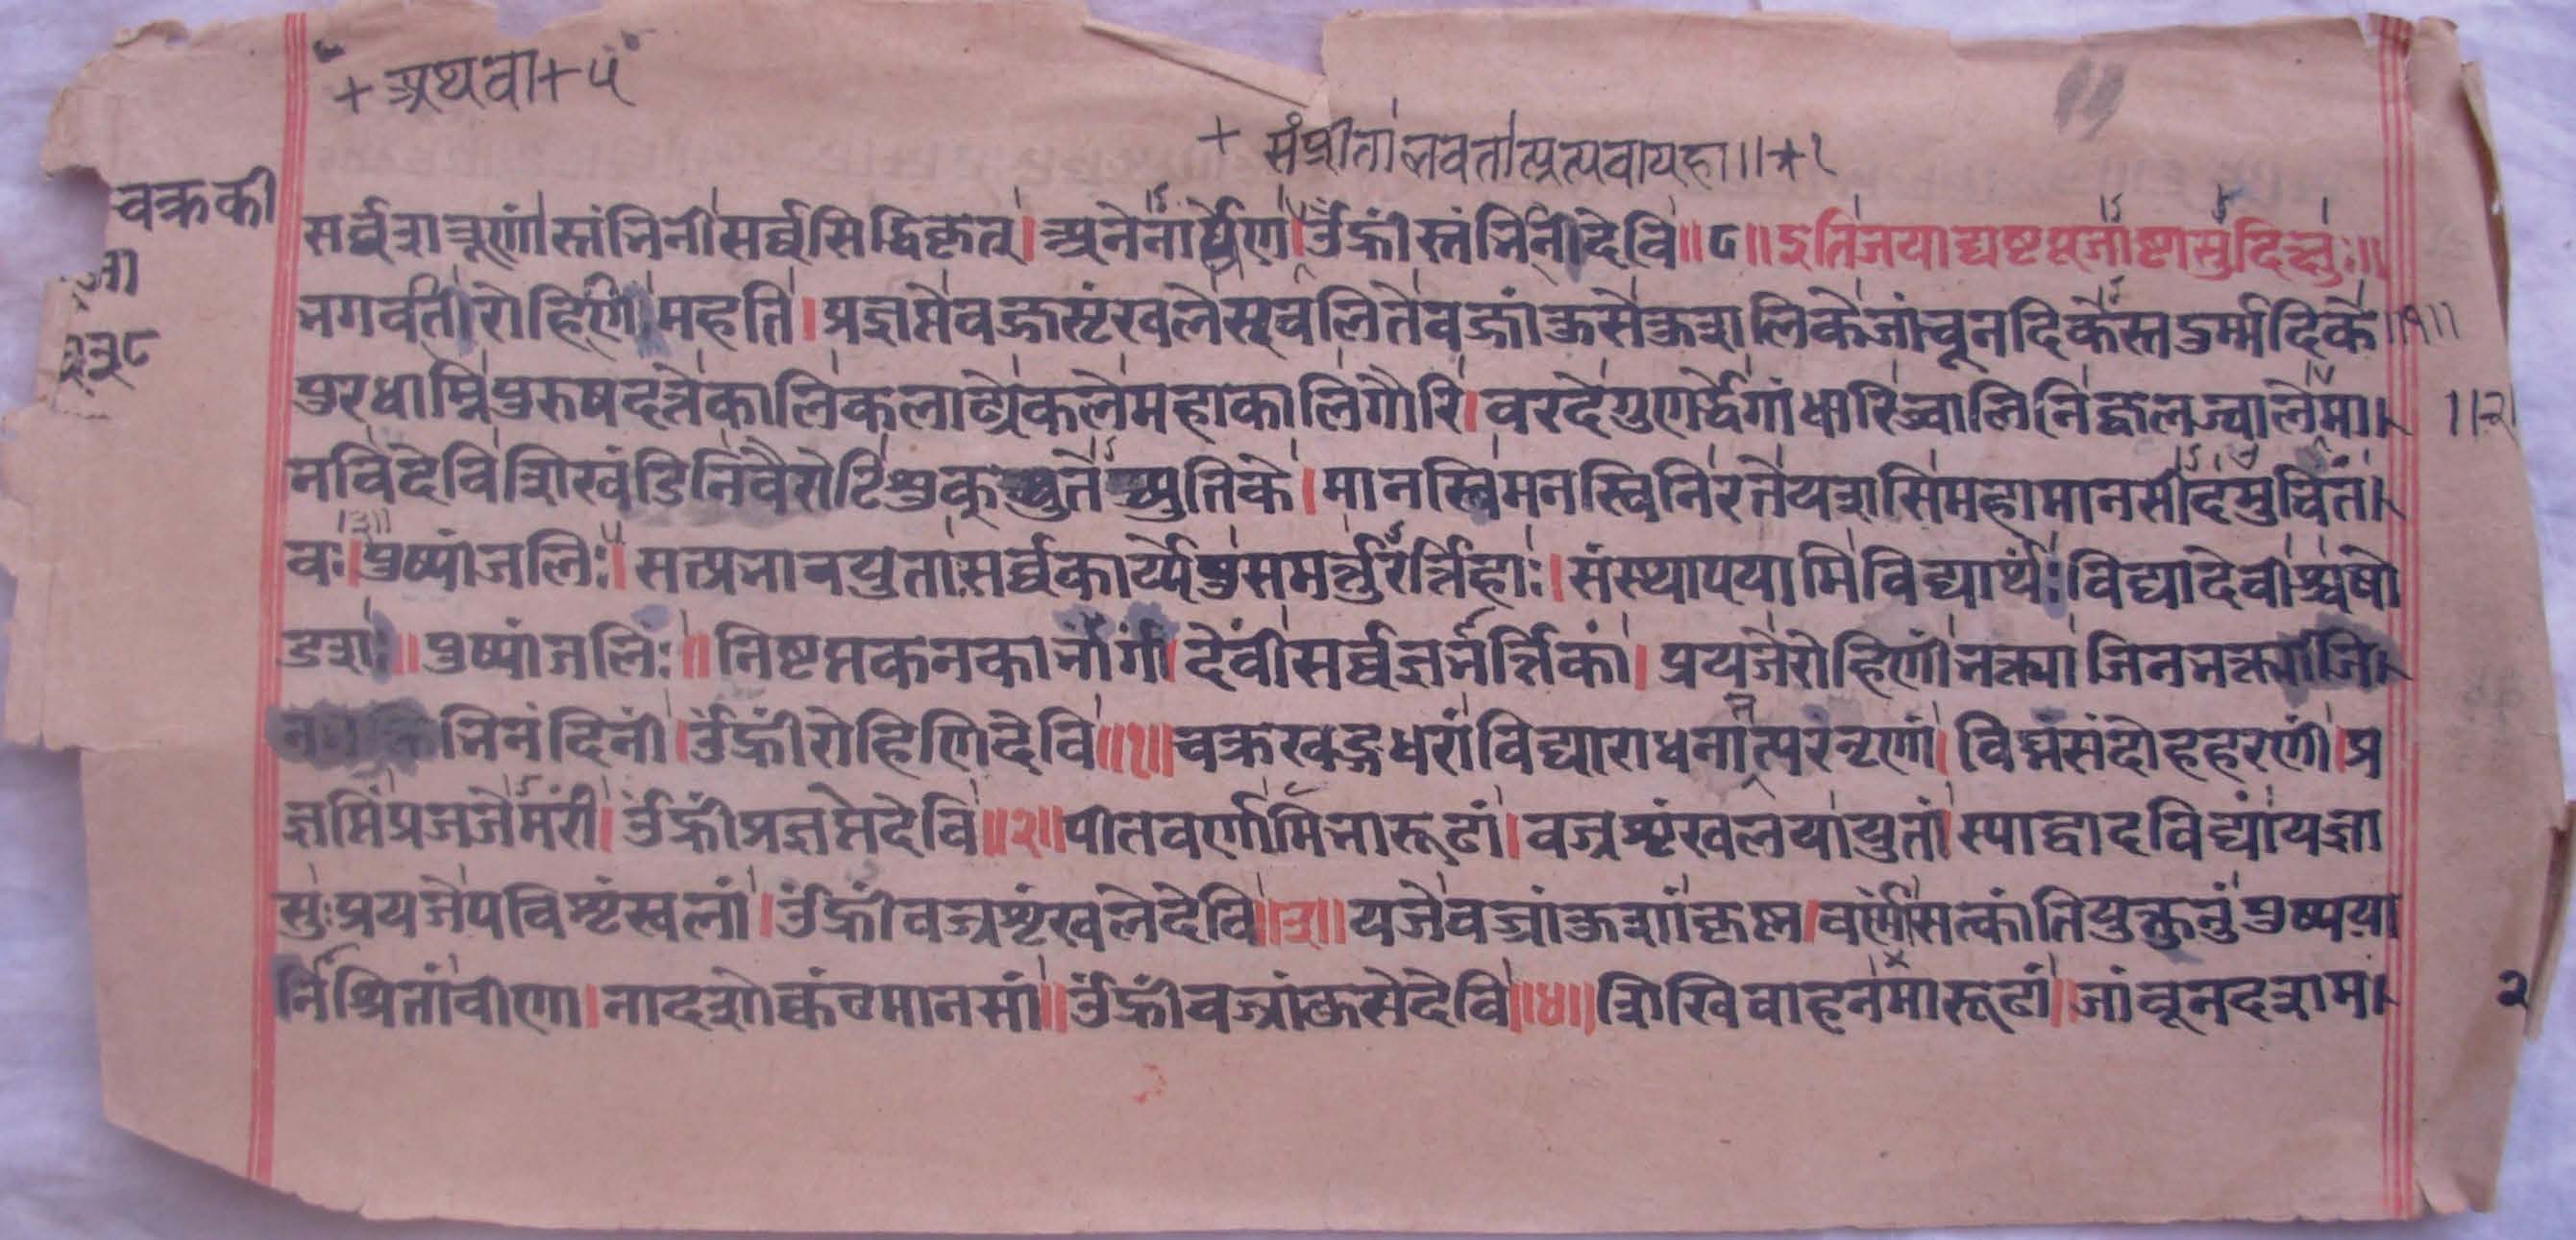 + अथवा + ५
+ संप्रीता भवतात्प्रत्यवायहा ॥ * १
चक्र की
२३८
सर्व्वशत्रूणां स्तंभिनी सर्व्वसिद्धिकृत् । अनेनार्घ्येण । उँ ह्रीं स्तंभिनी देवि ॥ ८ ॥ इति जयाद्यष्टपूजाष्टासु दिक्षुः ॥
भगवती रोहिणी महति । प्रज्ञप्ते वज्रशृंखले स्खलिते वज्रांकुसे कुशलिके जांबूनदिके स्त दुर्म्मदिके ॥ १ ॥
पुरधाम्नि पुरुषदत्ते कालि कलाढ्ये कले महाकालि गौरि । वरदे गुणर्द्धे गांधारि ज्वालिनि ज्वलज्ज्वाले मा ॥ २
नवि देवि शिखंडिनि वैरोटि च्युते च्युतिके । मानस्वि मनस्विनिरते यशसि महामानसी दमुचितं
वः । पुष्पांजलिः । सत्प्रभावयुता सर्व्वकार्य्येषु । संस्थापयामि विद्यार्थेः विद्यादेवीश्च षो
डशः ॥ पुष्पांजलिः ॥ निष्टप्तकनकाभांगीं देवीं सर्व्वज्ञभक्तिकां । प्रयजे रोहिणीं भक्त्या जिनभक्त्याभि
भिनंदिनीं । उँ ह्रीं रोहिणि देवि ॥ १ ॥ चक्रखड्गधरां विद्याराधनात्परंनृणां । विघ्नसंदोहहरणीं । प्र
ज्ञप्तिं प्रजजे । उँ ह्रीं प्रज्ञप्ते देवि ॥ २ ॥ पीतवर्णामिभारूढां । वज्रशृंखलया युतां स्याद्वादविद्यां यज्ञा
सुः प्रयजे पविशृंखलां । उँ ह्रीं वज्रशृंखले देवि ॥ ३ ॥ यजे वज्रांकुशां कृष्ण । वर्णां सत्कांतियुक्तनुं पुष्पया
नाश्रितां वीणा । नादशोक्कंठमानसां ॥ उँ ह्रीं वज्रांकुसे देवि ॥ ४ ॥ शिखिवाहनमारूढां । जांबूनदशाम
२